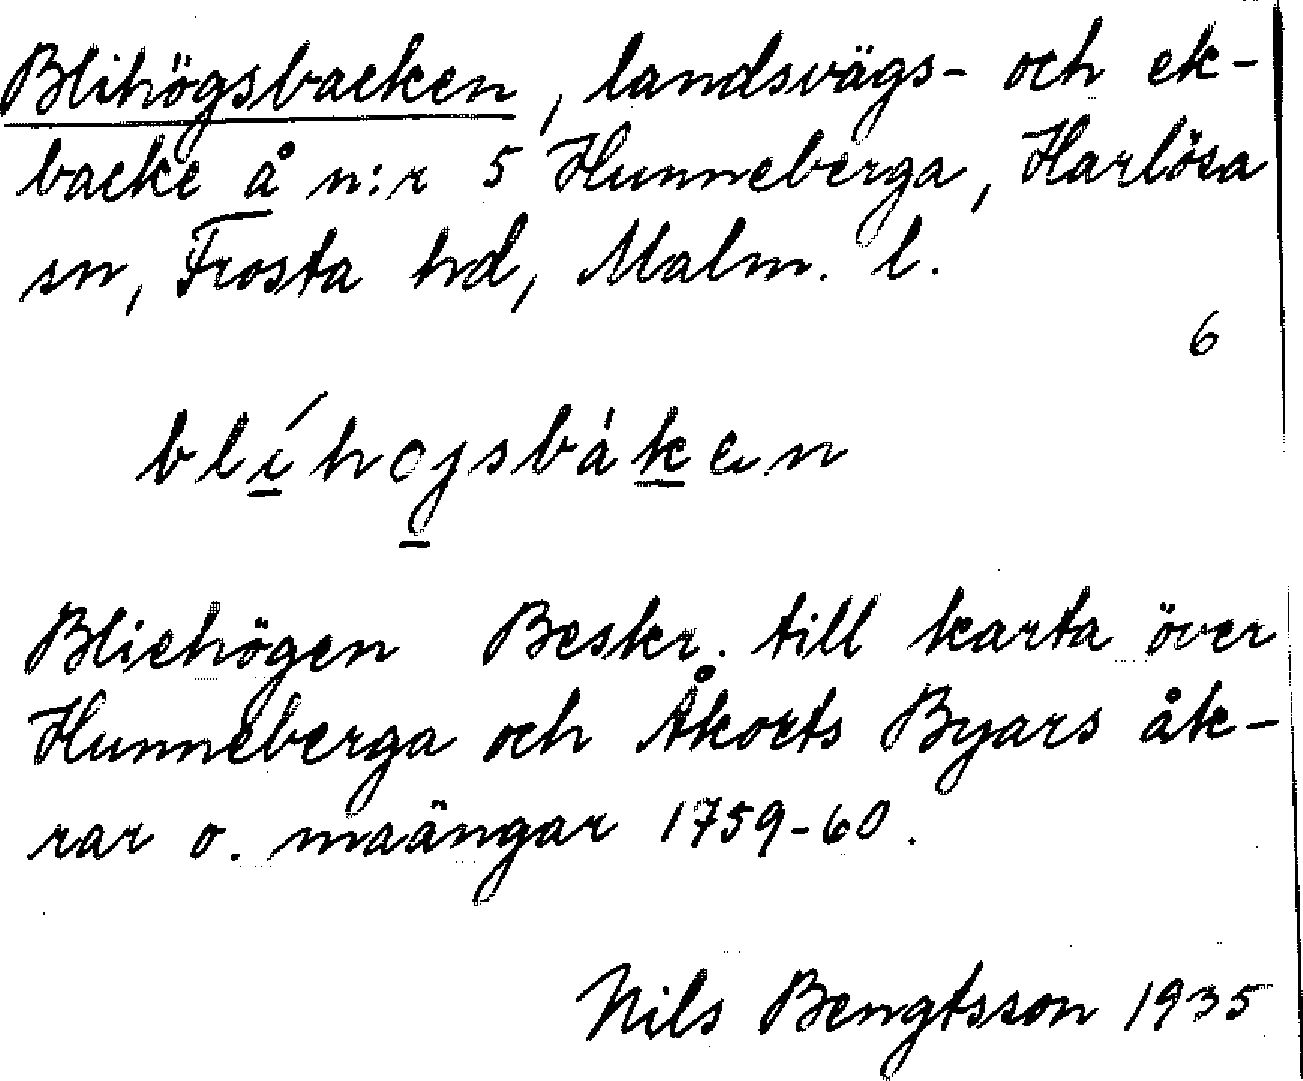 Blihögsbacken, landsvägs- och ek-
backe å n:r 5 Hunneberga, Harlösa
sn, Frosta hd, Malm. l.
6
blíhojsbákен
Bliehögen Beskr. till karta över
Hunneberga och Åkorts Byars åk-
rar o. maängar 1759-60.
Nils Bengtsson 1935